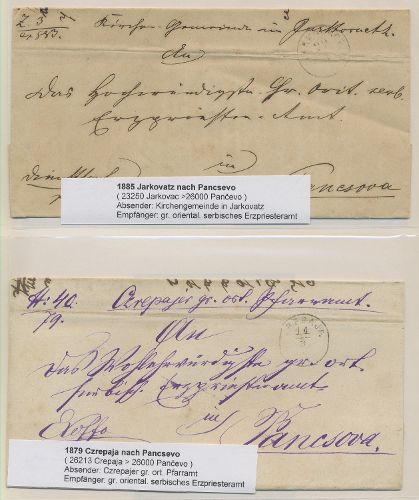 Kirchen-Gemeinde in
An
Das Hochwürdigste Gr. Orit. serb.
Erzpriester-Amt.
in
Pancsova
1885 Jarkovatz nach Pancsevo
( 23250 Jarkovac >26000 Pančevo )
Absender: Kirchengemeinde in Jarkovatz
Empfänger: gr. oriental. serbisches Erzpriesteramt
N: 40. Czrepajer gr. ort. Pfarramt.
79.
An
das Wohlehrwürdigste gr. ort.
serbisch. Erzpriesteramt
in
Exoffo Pancsova.
1879 Czrepaja nach Pancsevo
( 26213 Crepaja > 26000 Pančevo )
Absender: Czrepajer gr. ort. Pfarramt
Empfänger: gr. oriental. serbisches Erzpriesteramt